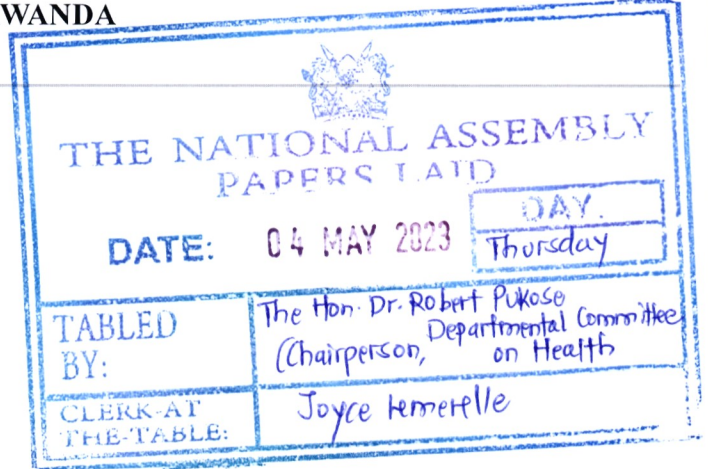 WANDA
THE NATIONAL ASSEMBLY
PAPERS LAID
DATE: 04 MAY 2023
DAY.
Thursday
TABLED
BY:
The Hon. Dr. Robert Pukose
(Chairperson, Departmental Committee
on Health
CLERK-AT
THE-TABLE:
Joyce